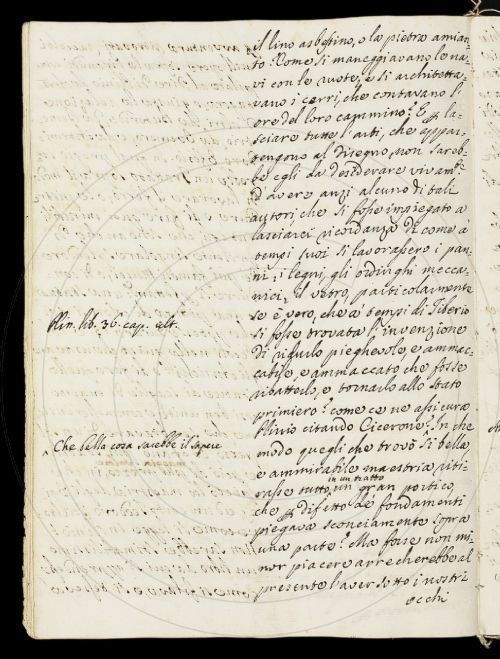 il lino asbestino, o la pietra amian-
to? Come si maneggiavano le na-
vi con le ruote, e si architetta-
vano i carri, che contavano l'
ore del loro cammino? E per la-
sciare tutte l'arti, che appar-
tengono al disegno, non sareb-
be egli da desiderare vivam.te
d'avere anzi alcuno di tali
autori, che si fosse impiegato a
lasciarci ricordanza di come a'
tempi suoi si lavorassero i pan-
ni, i legni, gli ordinghi mecca-
nici, il vetro, particolarmente
se è vero, che a' tempi di Tiberio
Plin. lib. 36. cap. ult.
si fosse trovata l'invenzione
di ridurlo pieghevole, e ammac-
cabile, e ammaccato che fosse
ribatterlo, e tornarlo allo stato
primiero? come ce ne assicura
Plinio citando Cicerone? In che
Che bella cosa sarebbe il sapere
modo quegli che trovò sì bella,
e ammirabile maestria, riti-
rasse tutto in un tratto un gran portico,
che per difetto de' fondamenti
piegava sconciamente sopra
una parte? Ma forse non mi-
nor piacere arrecherebbe al
presente l'aver sotto i nostri
occhi